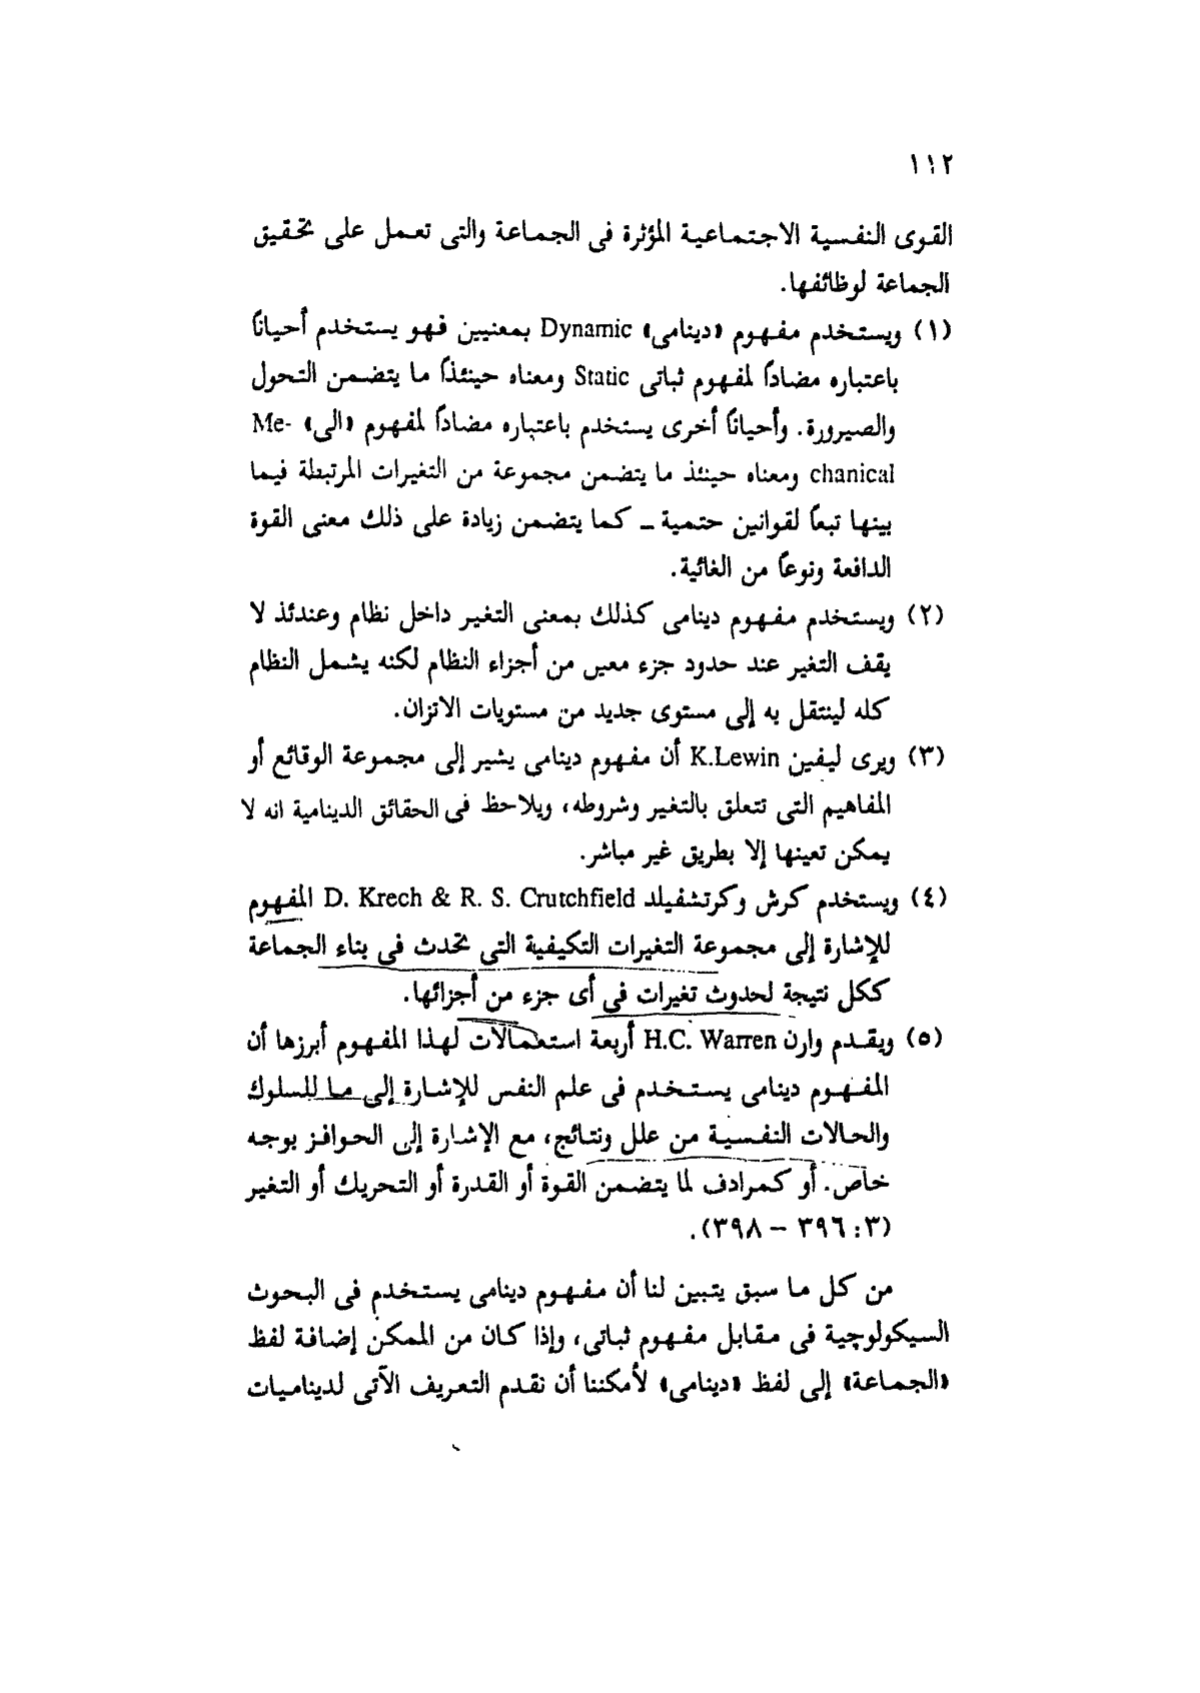 ١١٢
القوى النفسية الاجتماعية المؤثرة فى الجماعة والتى تعمل على تحقيق
الجماعة لوظائفها.
(١) ويستخدم مفهوم «دينامى» Dynamic بمعنيين فهو يستخدم أحياناً
باعتباره مضاداً لمفهوم ثباتى Static ومعناه حينئذاً ما يتضمن التحول
والصيرورة. وأحياناً أخرى يستخدم باعتباره مضاداً لمفهوم «الى» Me-
chanical ومعناه حينئذ ما يتضمن مجموعة من التغيرات المرتبطة فيما
بينها تبعاً لقوانين حتمية ــ كما يتضمن زيادة على ذلك معنى القوة
الدافعة ونوعاً من الغائية.
(٢) ويستخدم مفهوم دينامى كذلك بمعنى التغير داخل نظام وعندئذ لا
يقف التغير عند حدود جزء معين من أجزاء النظام لكنه يشمل النظام
كله لينتقل به إلى مستوى جديد من مستويات الاتزان.
(٣) ويرى ليفين K.Lewin أن مفهوم دينامى يشير إلى مجموعة الوقائع أو
المفاهيم التى تتعلق بالتغير وشروطه، ويلاحظ فى الحقائق الدينامية انه لا
يمكن تعينها إلا بطريق غير مباشر.
(٤) ويستخدم كرش وكرتشفيلد D. Krech & R. S. Crutchfield المفهوم
للإشارة إلى مجموعة التغيرات التكيفية التى تحدث فى بناء الجماعة
ككل نتيجة لحدوث تغيرات فى أى جزء من أجزائها.
(٥) ويقدم وارن H.C. Warren أربعة استعمالات لهذا المفهوم أبرزها أن
المفهوم دينامى يستخدم فى علم النفس للإشارة إلى ما للسلوك
والحالات النفسية من علل ونتائج، مع الإشارة إلى الحوافز بوجه
خاص. أو كمرادف لما يتضمن القوة أو القدرة أو التحريك أو التغير
(٣: ٣٩٦ – ٣٩٨).
من كل ما سبق يتبين لنا أن مفهوم دينامى يستخدم فى البحوث
السيكولوچية فى مقابل مفهوم ثباتى، وإذا كان من الممكن إضافة لفظ
«الجماعة» إلى لفظ «دينامى» لأمكننا أن نقدم التعريف الآتى لديناميات